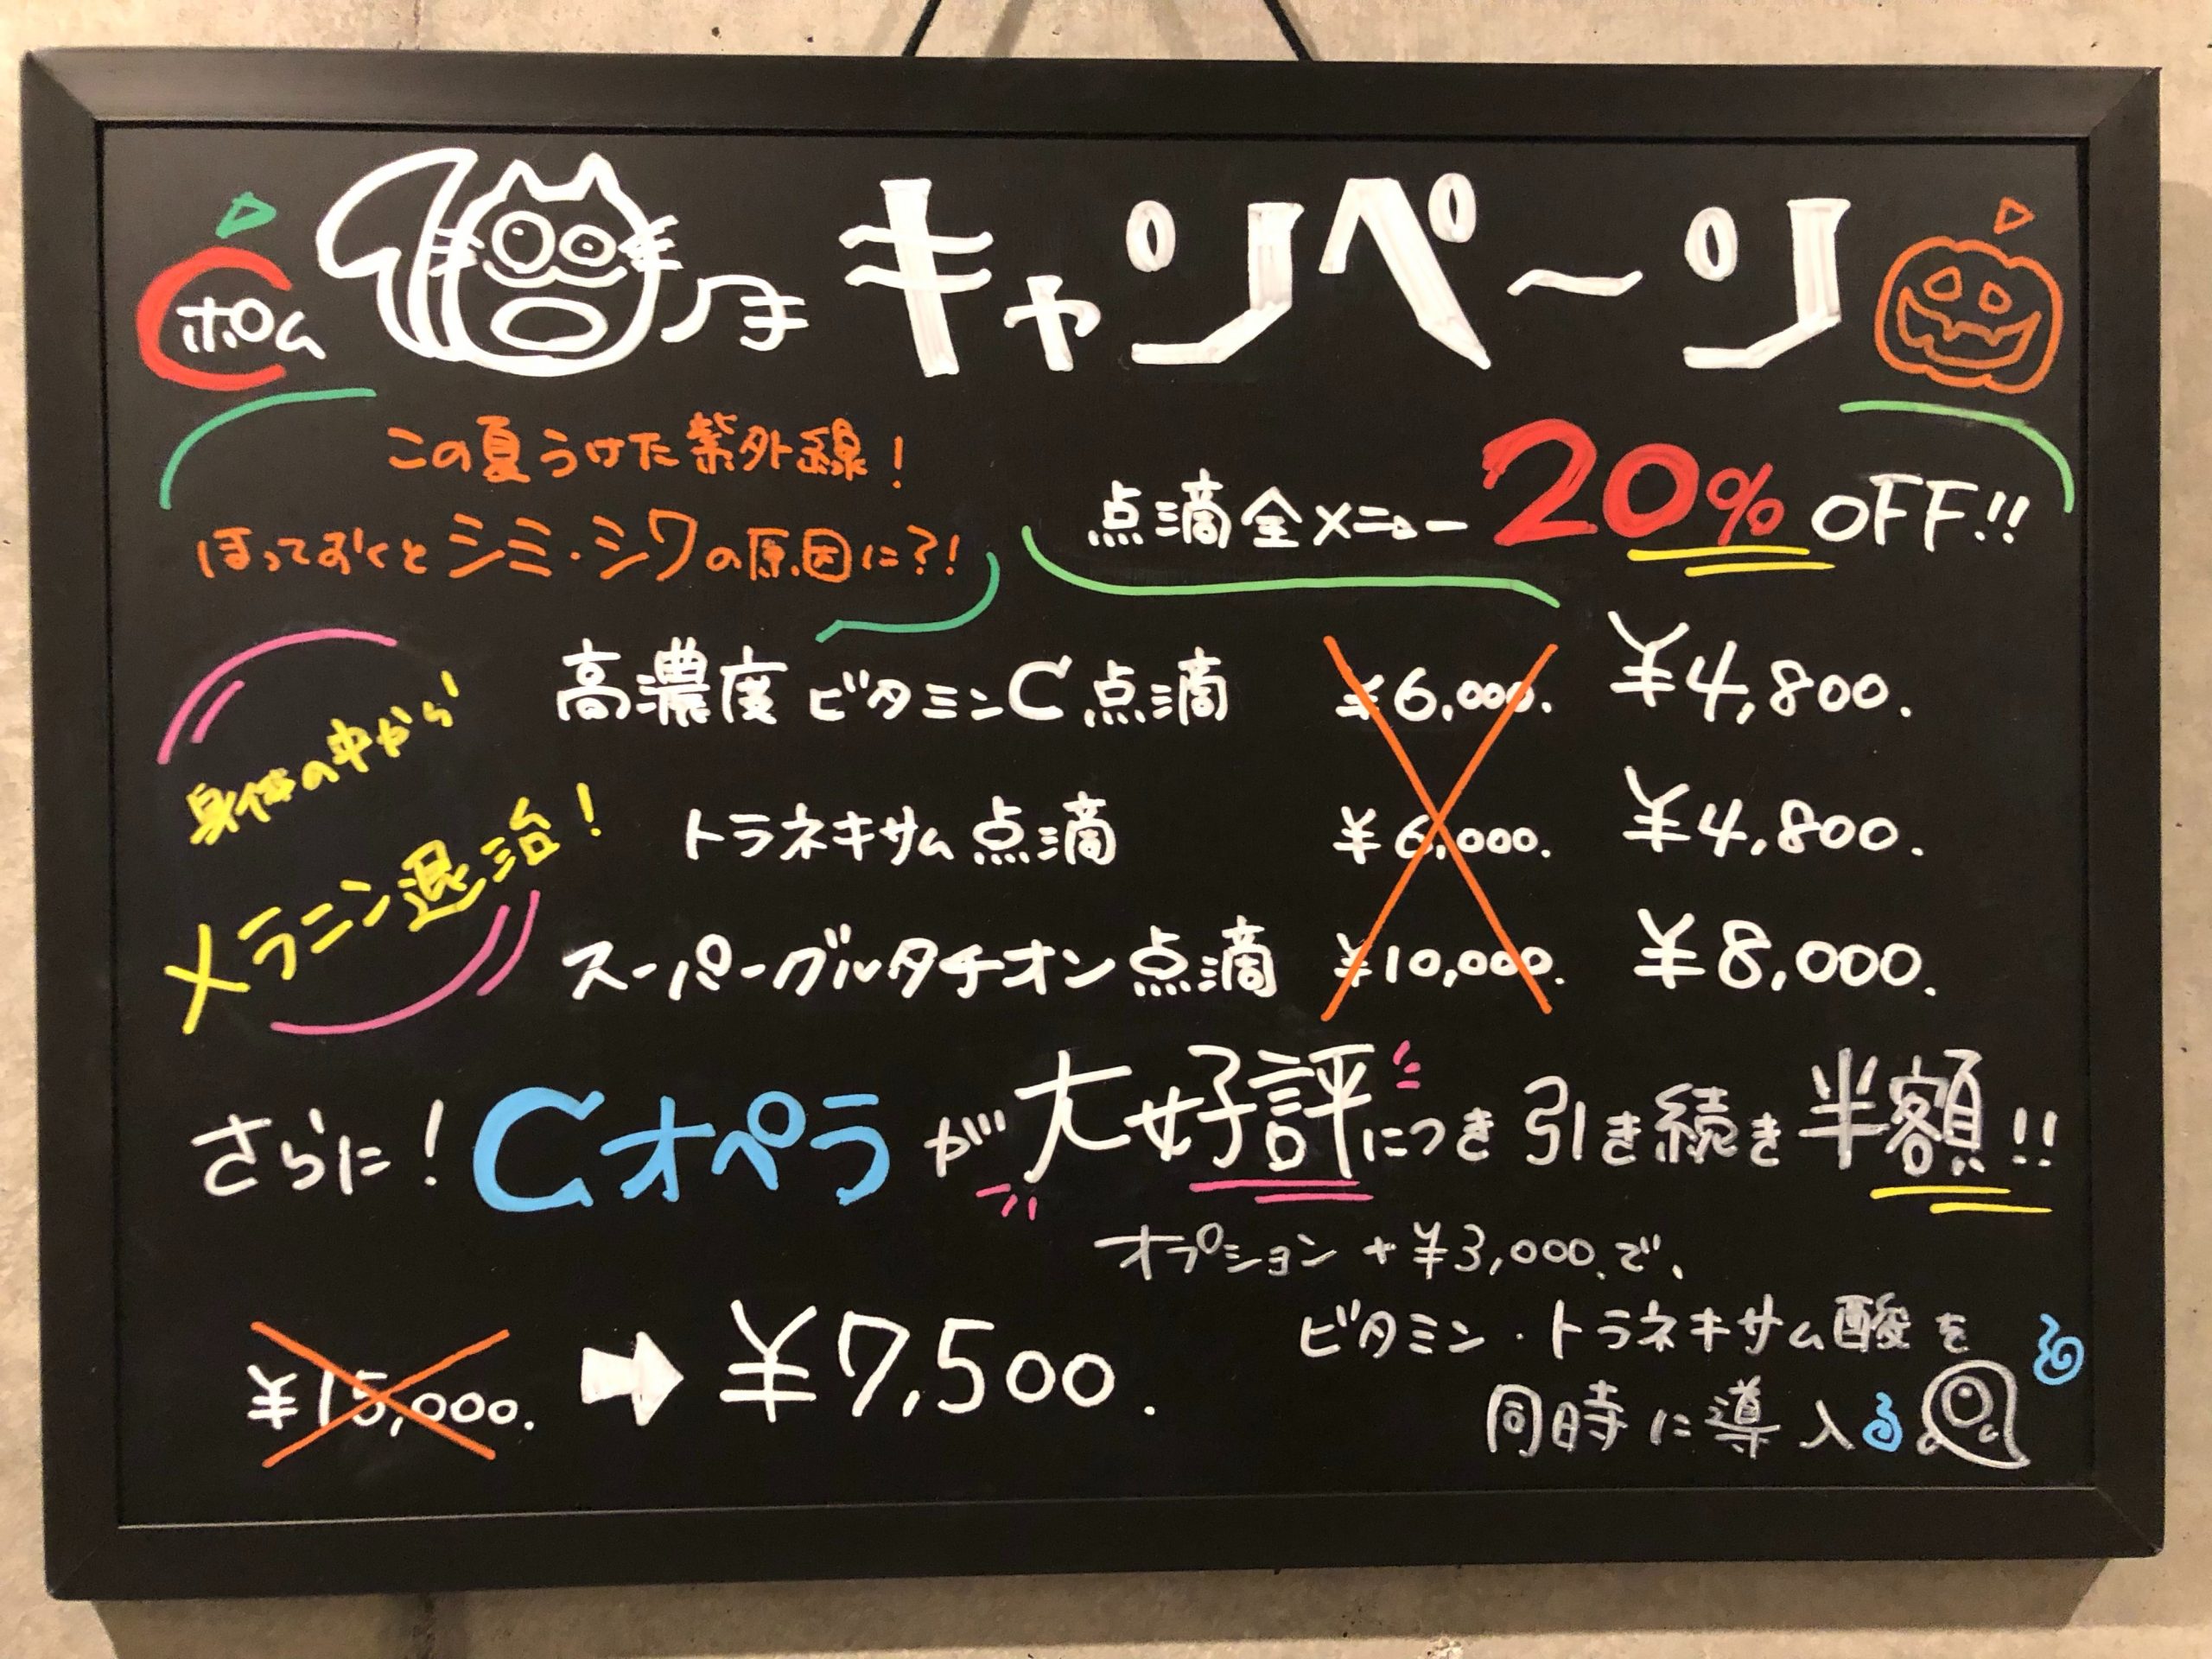 ホム
キャンペーン
この夏うけた紫外線！
ほっておくとシミ・シワの原因に？！
点滴全メニュー 20% OFF!!
身体の中から
メラニン退治！
高濃度ビタミンC点滴 ¥6,000. ¥4,800.
トラネキサム点滴 ¥6,000. ¥4,800.
スーパーグルタチオン点滴 ¥10,000. ¥8,000.
さらに！Cオペラが大好評につき引き続き半額!!
オプション+¥3,000.で、
ビタミン・トラネキサム酸を
同時に導入
¥15,000. ➡ ¥7,500.